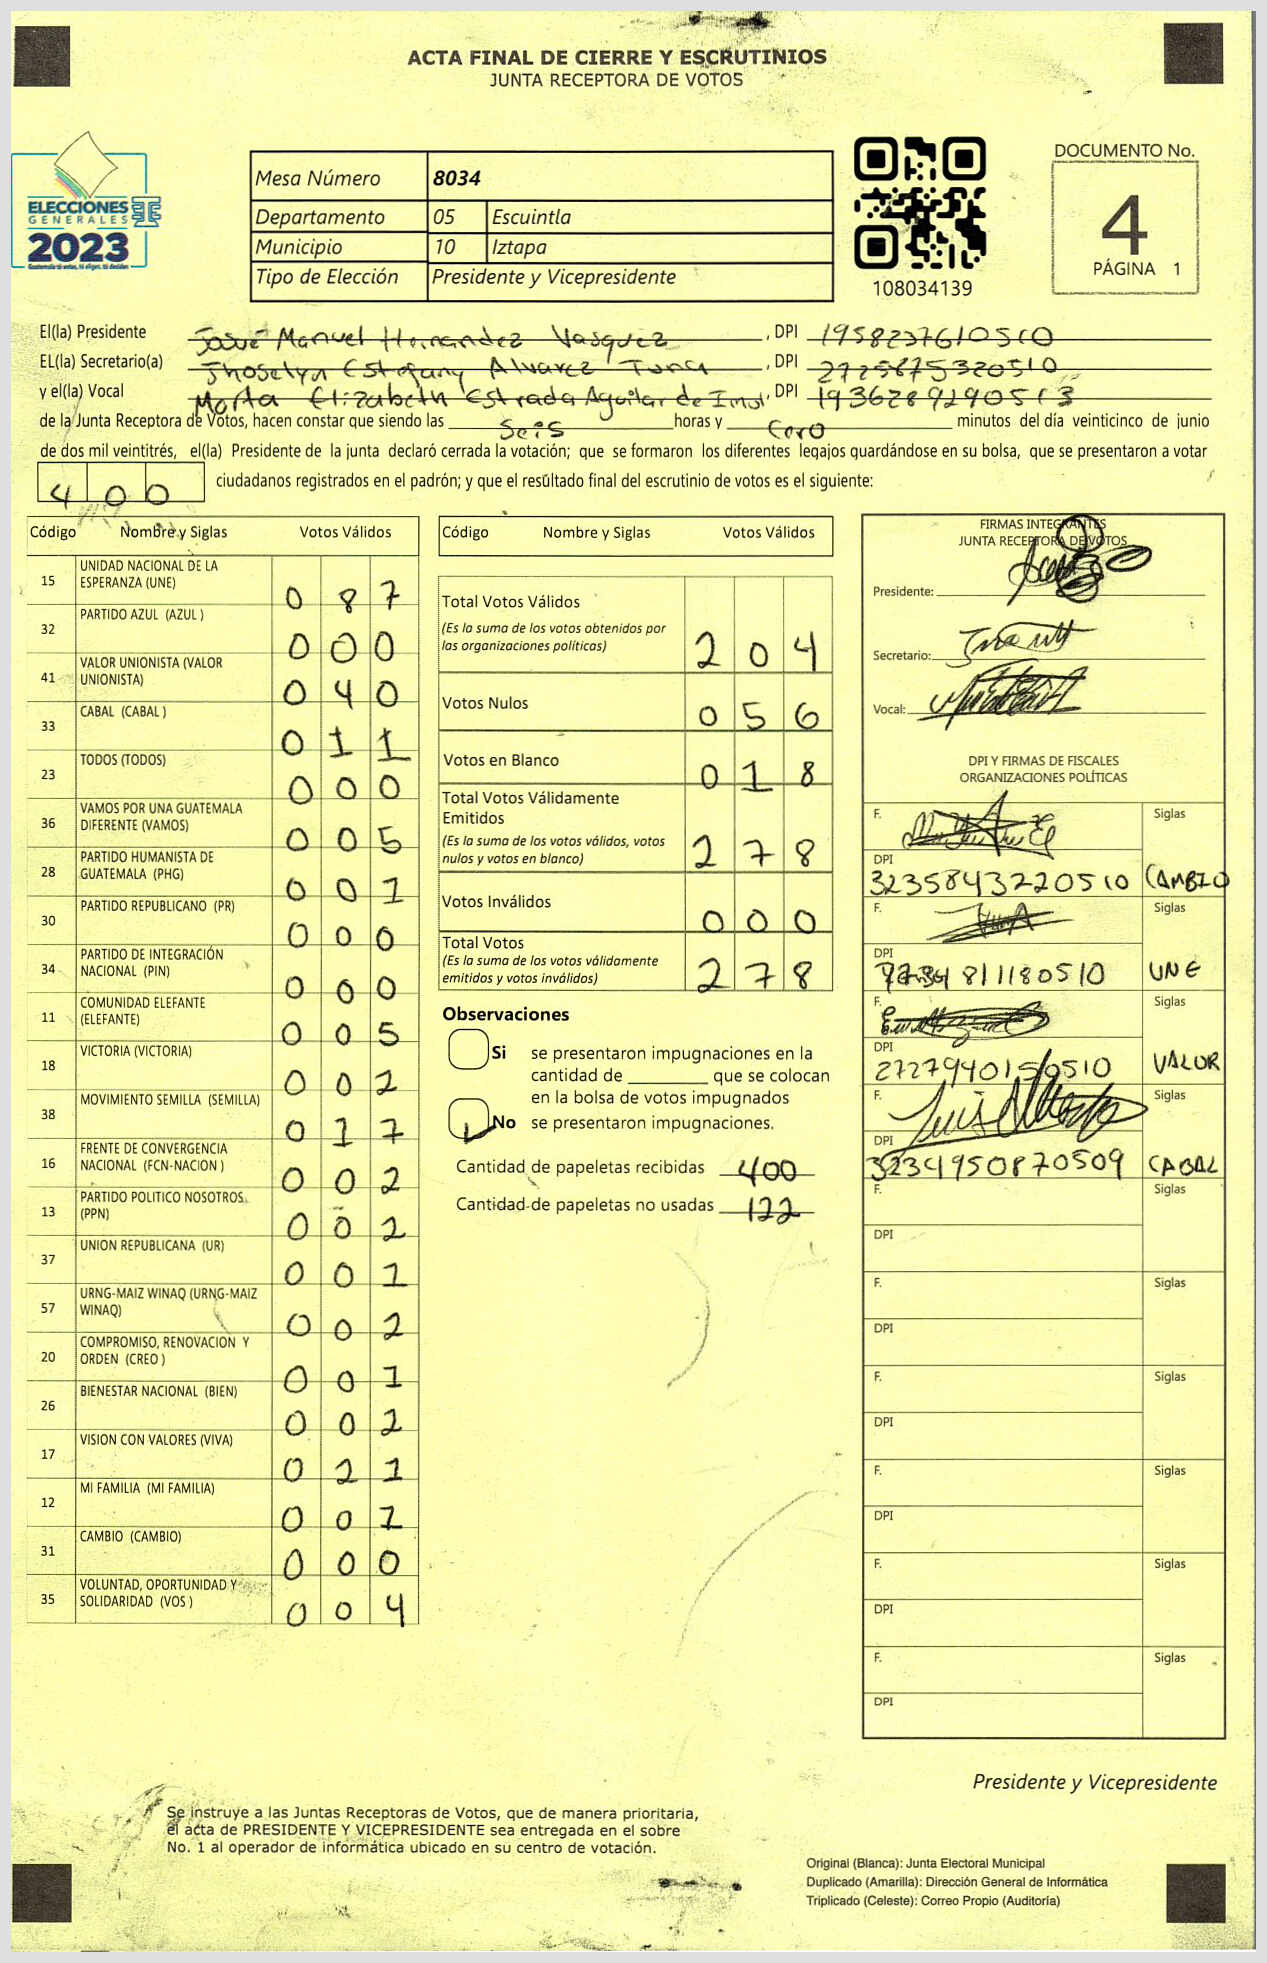 ACTA FINAL DE CIERRE Y ESCRUTINIOS
JUNTA RECEPTORA DE VOTOS
ELECCIONES
GENERALES
2023
Mesa Número 8034
Departamento 05 Escuintla
Municipio 10 Iztapa
Tipo de Elección Presidente y Vicepresidente
108034139
DOCUMENTO No.
4
PÁGINA 1
El(la) Presidente Josué Manuel Hernandez Vasquez, DPI 1958237610510
EL(la) Secretario(a) Jhoselyn Estefany Alvarez Tunca, DPI 2725875320510
y el(la) Vocal Marta Elizabeth Estrada Aguilar de, DPI 1936289290513
de la Junta Receptora de Votos, hacen constar que siendo las Seis horas y Cero minutos del día veinticinco de junio
de dos mil veintitrés, el(la) Presidente de la junta declaró cerrada la votación; que se formaron los diferentes legajos guardándose en su bolsa, que se presentaron a votar
400 ciudadanos registrados en el padrón; y que el resultado final del escrutinio de votos es el siguiente:
Código Nombre y Siglas Votos Válidos
15 UNIDAD NACIONAL DE LA ESPERANZA (UNE) 0 8 7
32 PARTIDO AZUL (AZUL ) 0 0 0
41 VALOR UNIONISTA (VALOR UNIONISTA) 0 4 0
33 CABAL (CABAL ) 0 1 1
23 TODOS (TODOS) 0 0 0
36 VAMOS POR UNA GUATEMALA DIFERENTE (VAMOS) 0 0 5
28 PARTIDO HUMANISTA DE GUATEMALA (PHG) 0 0 1
30 PARTIDO REPUBLICANO (PR) 0 0 0
34 PARTIDO DE INTEGRACIÓN NACIONAL (PIN) 0 0 0
11 COMUNIDAD ELEFANTE (ELEFANTE) 0 0 5
18 VICTORIA (VICTORIA) 0 0 2
38 MOVIMIENTO SEMILLA (SEMILLA) 0 1 7
16 FRENTE DE CONVERGENCIA NACIONAL (FCN-NACION ) 0 0 2
13 PARTIDO POLITICO NOSOTROS (PPN) 0 0 2
37 UNION REPUBLICANA (UR) 0 0 1
57 URNG-MAIZ WINAQ (URNG-MAIZ WINAQ) 0 0 2
20 COMPROMISO, RENOVACION Y ORDEN (CREO ) 0 0 1
26 BIENESTAR NACIONAL (BIEN) 0 0 2
17 VISION CON VALORES (VIVA) 0 2 1
12 MI FAMILIA (MI FAMILIA) 0 0 1
31 CAMBIO (CAMBIO) 0 0 0
35 VOLUNTAD, OPORTUNIDAD Y SOLIDARIDAD (VOS ) 0 0 4
Código Nombre y Siglas Votos Válidos
Total Votos Válidos 2 0 4
(Es la suma de los votos obtenidos por
las organizaciones políticas)
Votos Nulos 0 5 6
Votos en Blanco 0 1 8
Total Votos Válidamente
Emitidos 2 7 8
(Es la suma de los votos válidos, votos
nulos y votos en blanco)
Votos Inválidos 0 0 0
Total Votos 2 7 8
(Es la suma de los votos válidamente
emitidos y votos inválidos)
Observaciones
Si se presentaron impugnaciones en la
cantidad de ________ que se colocan
en la bolsa de votos impugnados
No se presentaron impugnaciones.
Cantidad de papeletas recibidas 400
Cantidad de papeletas no usadas 122
FIRMAS INTEGRANTES
JUNTA RECEPTORA DE VOTOS
Presidente:
Secretario:
Vocal:
DPI Y FIRMAS DE FISCALES
ORGANIZACIONES POLÍTICAS
F. Siglas
DPI
3235843220510 CAMBIO
F. Siglas
DPI
UNE
F. Siglas
DPI
VALOR
F. Siglas
DPI
3234950870509 CABAL
F. Siglas
DPI
F. Siglas
DPI
F. Siglas
DPI
F. Siglas
DPI
F. Siglas
DPI
F. Siglas
DPI
Presidente y Vicepresidente
Se instruye a las Juntas Receptoras de Votos, que de manera prioritaria,
el acta de PRESIDENTE Y VICEPRESIDENTE sea entregada en el sobre
No. 1 al operador de informática ubicado en su centro de votación.
Original (Blanca): Junta Electoral Municipal
Duplicado (Amarilla): Dirección General de Informática
Triplicado (Celeste): Correo Propio (Auditoría)